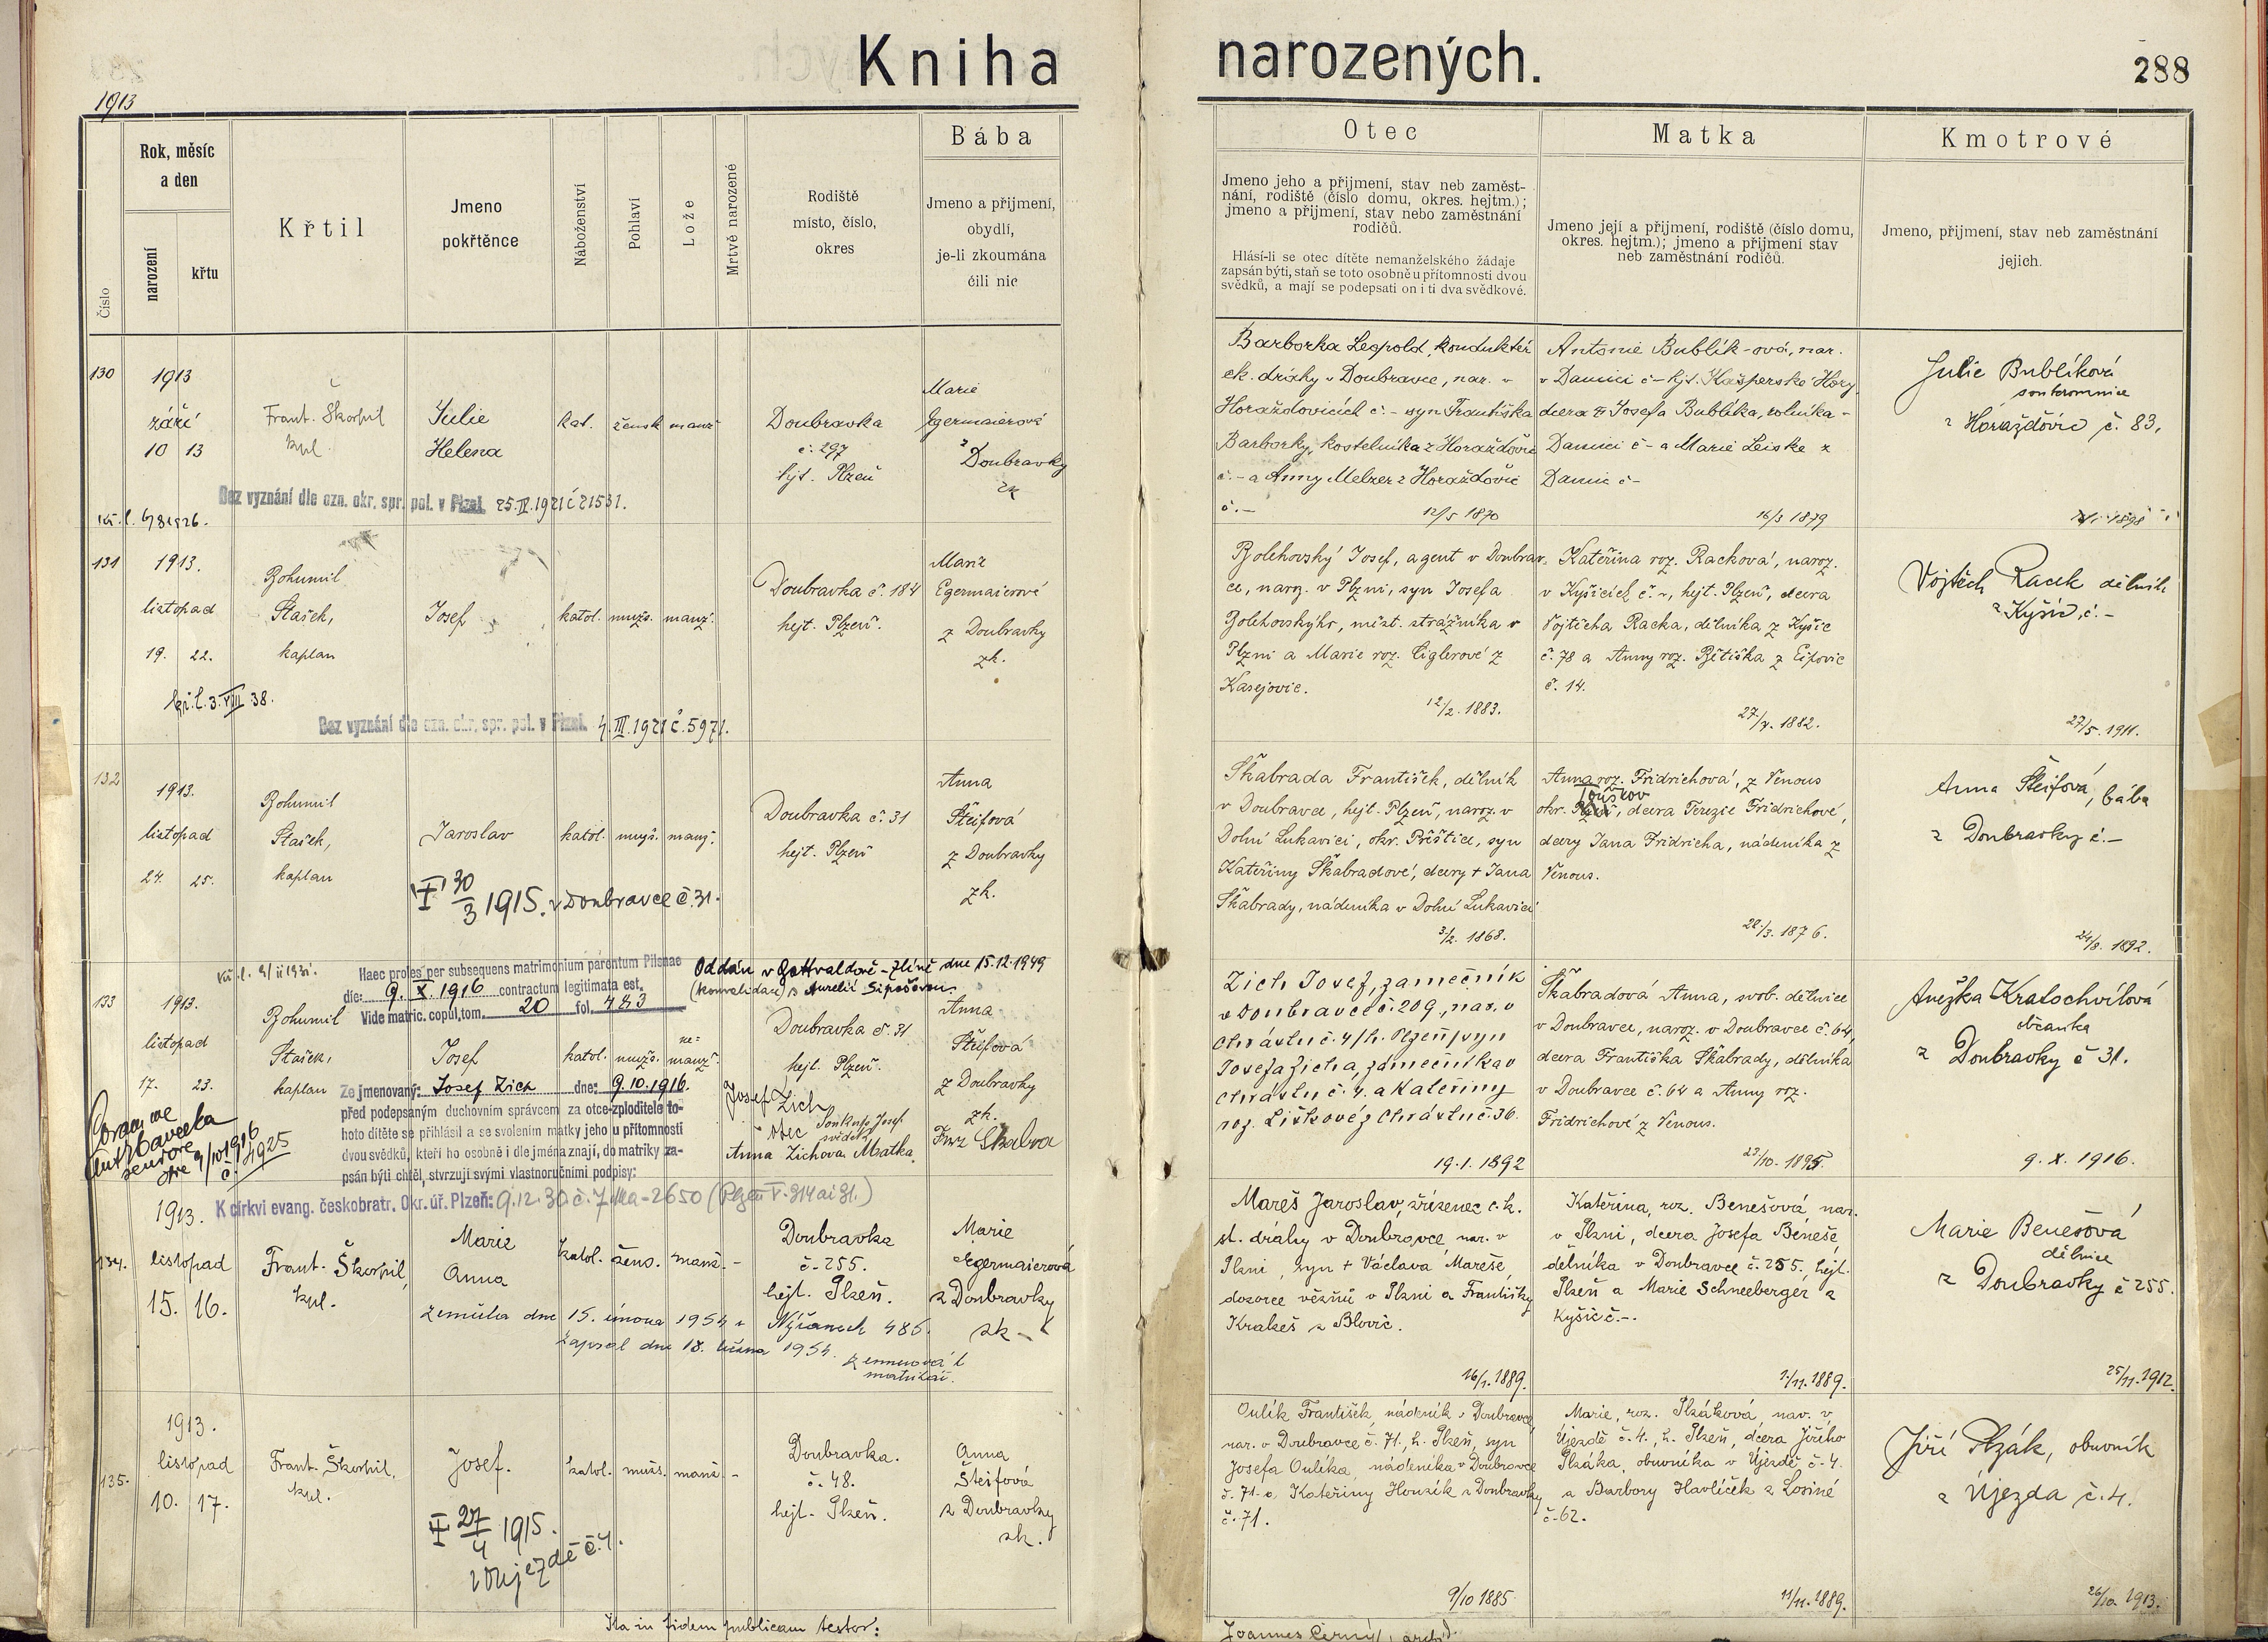 Kniha narozených.
288
1913
Číslo
Rok, měsíc
a den
narození
křtu
Křtil
Jmeno
pokřtěnce
Náboženství
Pohlaví
Lože
Mrtvě narozené
Rodiště
místo, číslo,
okres
Bába
Jmeno a přijmení,
obydlí,
je-li zkoumána
čili nic
Otec
Jmeno jeho a přijmení, stav neb zaměst-
nání, rodiště (číslo domu, okres. hejtm.);
jmeno a přijmení, stav nebo zaměstnání
rodičů.
Hlásí-li se otec dítěte nemanželského žádaje
zapsán býti, staň se toto osobně u přítomnosti dvou
svědků, a mají se podepsati on i ti dva svědkové.
Matka
Jmeno její a přijmení, rodiště (číslo domu,
okres. hejtm.); jmeno a přijmení stav
neb zaměstnání rodičů.
Kmotrové
Jmeno, přijmení, stav neb zaměstnání
jejich.
130
1913
září
10 13
Frant. Škorpil
kpl.
Julie
Helena
kat. žensk manž
Doubravka
č. 297
hjt. Plzeň
Marie
Egermaierová
z Doubravky
zk
Bez vyznání dle ozn. okr. spr. pol. v Plzni 25.IV.1921 č 21531.
Barborka Leopold, konduktér
ck. dráhy v Doubravce, nar. v
Horažďovicích č. – syn Františka
Barborky, kostelníka z Horažďovic
č. – a Anny Melzer z Horažďovic
č. –
12/5 1870
Antonie Bublík-ová, nar.
v Damici č – hjt. Kašperské Hory
dcera Josefa Bublíka, rolníka
Damici č – a Marie Leiske z
Damic č –
16/3 1879
Julie Bublíková
z Horažďovic č. 83.
131
1913.
listopad
19. 22.
Bohumil
Stašek,
kaplan
Josef
katol. mužs. manž.
Doubravka č. 184
hejt. Plzeň.
Marie
Egermaierové
z Doubravky
zk.
3. VIII 38.
Bez vyznání dle ozn. okr. spr. pol. v Plzni. 4.III.1921 č. 5971.
Bolehovský Josef, agent v Doubrav-
ce, naroz. v Plzni, syn Josefa
Bolehovskýho, měst. strážníka v
Plzni a Marie roz. Ciglerové z
Kasejovic.
12/2. 1883.
Kateřina roz. Racková, naroz.
v Kyšicích č. –, hejt. Plzeň, dcera
Vojtěcha Racka, dělníka z Kyšic
č. 78 a Anny roz. Bětiška z Ejpovic
č. 14.
1882.
Vojtěch Racek dělník
z Kyšic, č. –
27/5. 1911.
132
1913.
listopad
24. 25.
Bohumil
Stašek,
kaplan
Jaroslav
katol. mužs. manž.
Doubravka č. 31
hejt. Plzeň
Anna
Šteifová
z Doubravky
zk.
30/3 1915. v Doubravce č. 31.
Škabrada František, dělník
v Doubravce, hejt. Plzeň, naroz. v
Dolní Lukavici, okr. Přeštice, syn
Kateřiny Škabradové, dcery + Jana
Škabrady, nádeníka v Dolní Lukavici
3/2. 1868.
Anna roz. Fridrichová, z Venous
Touškov
okr. Plzeň, dcera Terezie Fridrichové,
dcery Jana Fridricha, nádeníka z
Venous.
22/3. 1876.
Anna Šteifová, bába
z Doubravky č. –
24/8. 1892.
133
Haec proles per subsequens matrimonium parentum Pilsnae
die: 9. X. 1916 contractum legitimata est.
Vide matric. copul. tom. 20 fol. 483
Oddán v Gottwaldově-Zlíně dne 15.12.1949
1913.
listopad
17. 23.
Bohumil
Stašek,
kaplan
Josef
katol. mužs. ne-
manž.
Doubravka č. 31
hejt. Plzeň.
Anna
Šteifová
z Doubravky
zk.
Ze jmenovaný: Josef Zich dne: 9.10.1916.
před podepsaným duchovním správcem za otce-zploditele to-
hoto dítěte se přihlásil a se svolením matky jeho u přítomnosti
dvou svědků, kteří ho osobně i dle jména znají, do matriky za-
psán býti chtěl, stvrzují svými vlastnoručními podpisy:
Josef Zich
otec
Anna Zichova Matka
K církvi evang. českobratr. Okr. úř. Plzeň: 9.12.30 č. 7
Zich Josef, zamečník
v Doubravce č. 209, nar. v
Chrástu č. 4, h. Plzeň, syn
Josefa Zicha, zámečníka v
Chrástu č. 4. a Kateřiny
roz. Liškové z Chrástu č. 36.
19.1.1892
Škabradová Anna, svob. dělnice
v Doubravce, naroz. v Doubravce č. 64,
dcera Františka Škabrady, dělníka
v Doubravce č. 64 a Anny roz.
Fridrichové z Venous.
1895.
Anežka Kratochvílová
z Doubravky č 31.
9. X. 1916.
134.
1913.
listopad
15. 16.
Frant. Škorpil,
kpl.
Marie
Anna
katol. žens. manž. –
Doubravka
č. 255.
hejt. Plzeň.
Marie
Egermaierová
z Doubravky
zk –
zemřela dne 15. února 1954 v Nýřanech 486.
zapsal dne 18. 1954.
Mareš Jaroslav, zřízenec c.k.
st. dráhy v Doubravce, nar. v
Plzni, syn + Václava Mareše,
dozorce věznů v Plzni a Františky
Krakeš z Blovic.
16/1. 1889.
Kateřina, roz. Benešová nar.
v Plzni, dcera Josefa Beneše,
dělníka v Doubravce č. 255, hejt.
Plzeň a Marie Schneeberger z
Kyšic č. –.
1889.
Marie Benešová
dělnice
z Doubravky č 255.
25/11. 1912.
135.
1913.
listopad
10. 17.
Frant. Škorpil,
kpl.
Josef.
katol. mužs. manž. –
Doubravka.
č. 48.
hejt. Plzeň.
Anna
Šteifová
z Doubravky
zk.
27/4 1915.
v Újezdě č. 4.
Oulík František, nádeník v Doubravce,
nar. v Doubravce č. 71, h. Plzeň, syn
Josefa Oulíka, nádeníka v Doubravce
č. 71 a Kateřiny Houzík z Doubravky
č. 71.
9/10 1885
Marie, roz. Plzáková, nar. v
Újezdě č. 4., h. Plzeň, dcera Jiřího
Plzáka, obuvníka v Újezdě č. 4.
a Barbory Havlíček z Losiné
č. 62.
11/11. 1889.
Jiří Plzák, obuvník
z Újezda č. 4.
26/10. 1913.
Ita in fidem publicam testor:
Joannes Černý